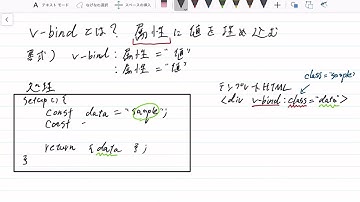 テキストモード
v-bind とは? 属性に値を埋め込む
書式) v-bind:属性="値"
:属性="値"
処理
setup() {
const data = "sample";
const -
return { data };
}
class="sample"
テンプレートHTML
<div v-bind:class="data">